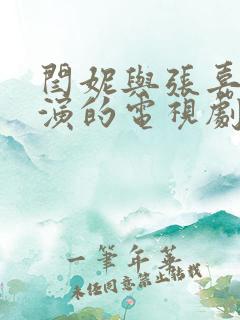 閆妮與張嘉
演的電視劇
一筆年華
未经同意禁止转载